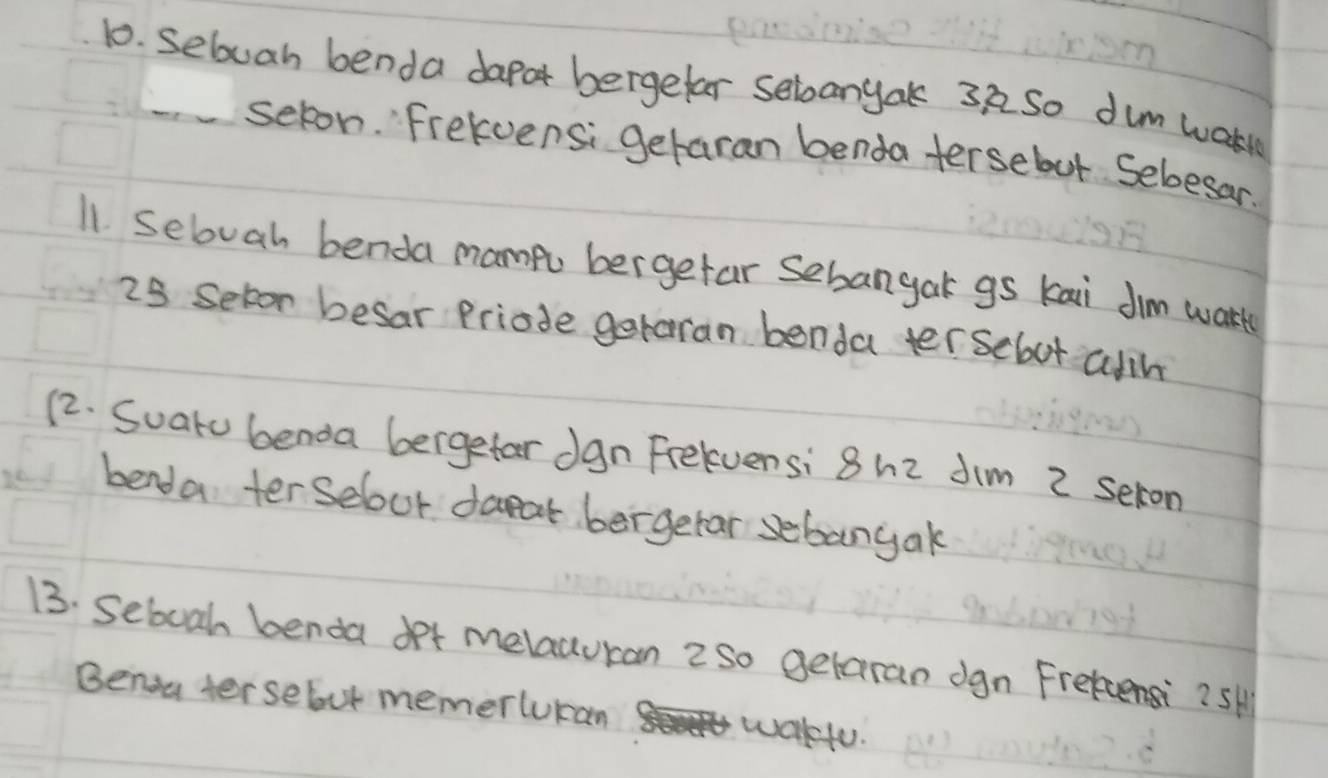 10. Sebuah benda dapat bergetar sebanyak so dlm waktu
sekon. Frekuensi getaran benda tersebut Sebesar.
11. Sebuah benda mampu bergetar Sebanyak 95 kai dlm waktu
25 Sekon besar Priode getaran benda tersebut adlh
12. Suatu benda bergetar dgn Frekuensi 8 hz dlm 2 sekon
benda tersebut dapat bergetar sebanyak
13. Sebuah benda dpt melakukan 250 getaran dgn Frekuensi 25H
Benda tersebut memerlukan waktu.